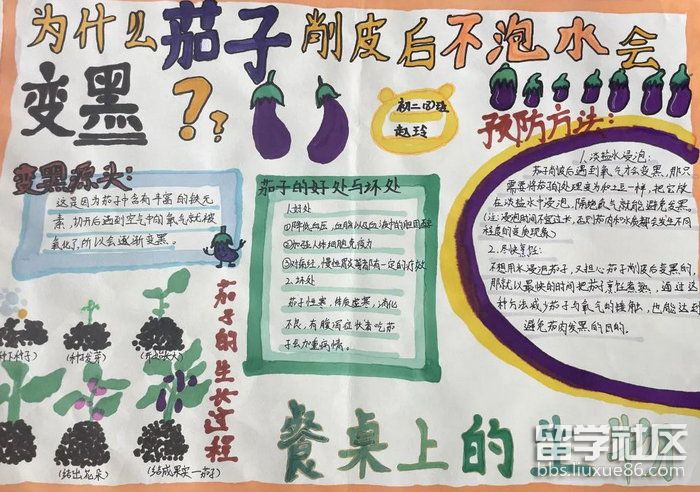 为什么茄子削皮后不泡水会
变黑??
初二(3)班
赵玲
变黑源头:
这是因为茄子中含有丰富的铁元
素,切开后遇到空气中的氧气就被
氧化了,所以会逐渐变黑。
茄子的好处与坏处
1.好处
①降低血压,血脂以及血液中的胆固醇
②加强人体细胞免疫力
③对痛经,慢性胃炎等都有一定的疗效
2.坏处
茄子性寒,体质虚寒,消化
不良,有腹泻症状者吃茄
子会加重病情。
预防方法:
1.淡盐水浸泡:
茄子削皮后遇到氧气才会变黑,那只
需要将茄子的处理变为和土豆一样,把它放
在淡盐水中浸泡,隔绝氧气就能避免变黑
(注:浸泡时间不宜过长,否则茄肉和水质都会发生不同
程度的变质现象)
2.尽快烹饪:
不想用水浸泡茄子,又担心茄子削皮后变黑的
那就以最快的时间把茄子烹饪煮熟,通过这
种方法减少茄子与氧气的接触,也能达到
避免茄肉发黑的目的。
茄子的生长过程
(种下种子)
(种子发芽)
(结出花朵)
(结成果实一茄子)
餐桌上的
留学社区
bbs.liuxue86.com